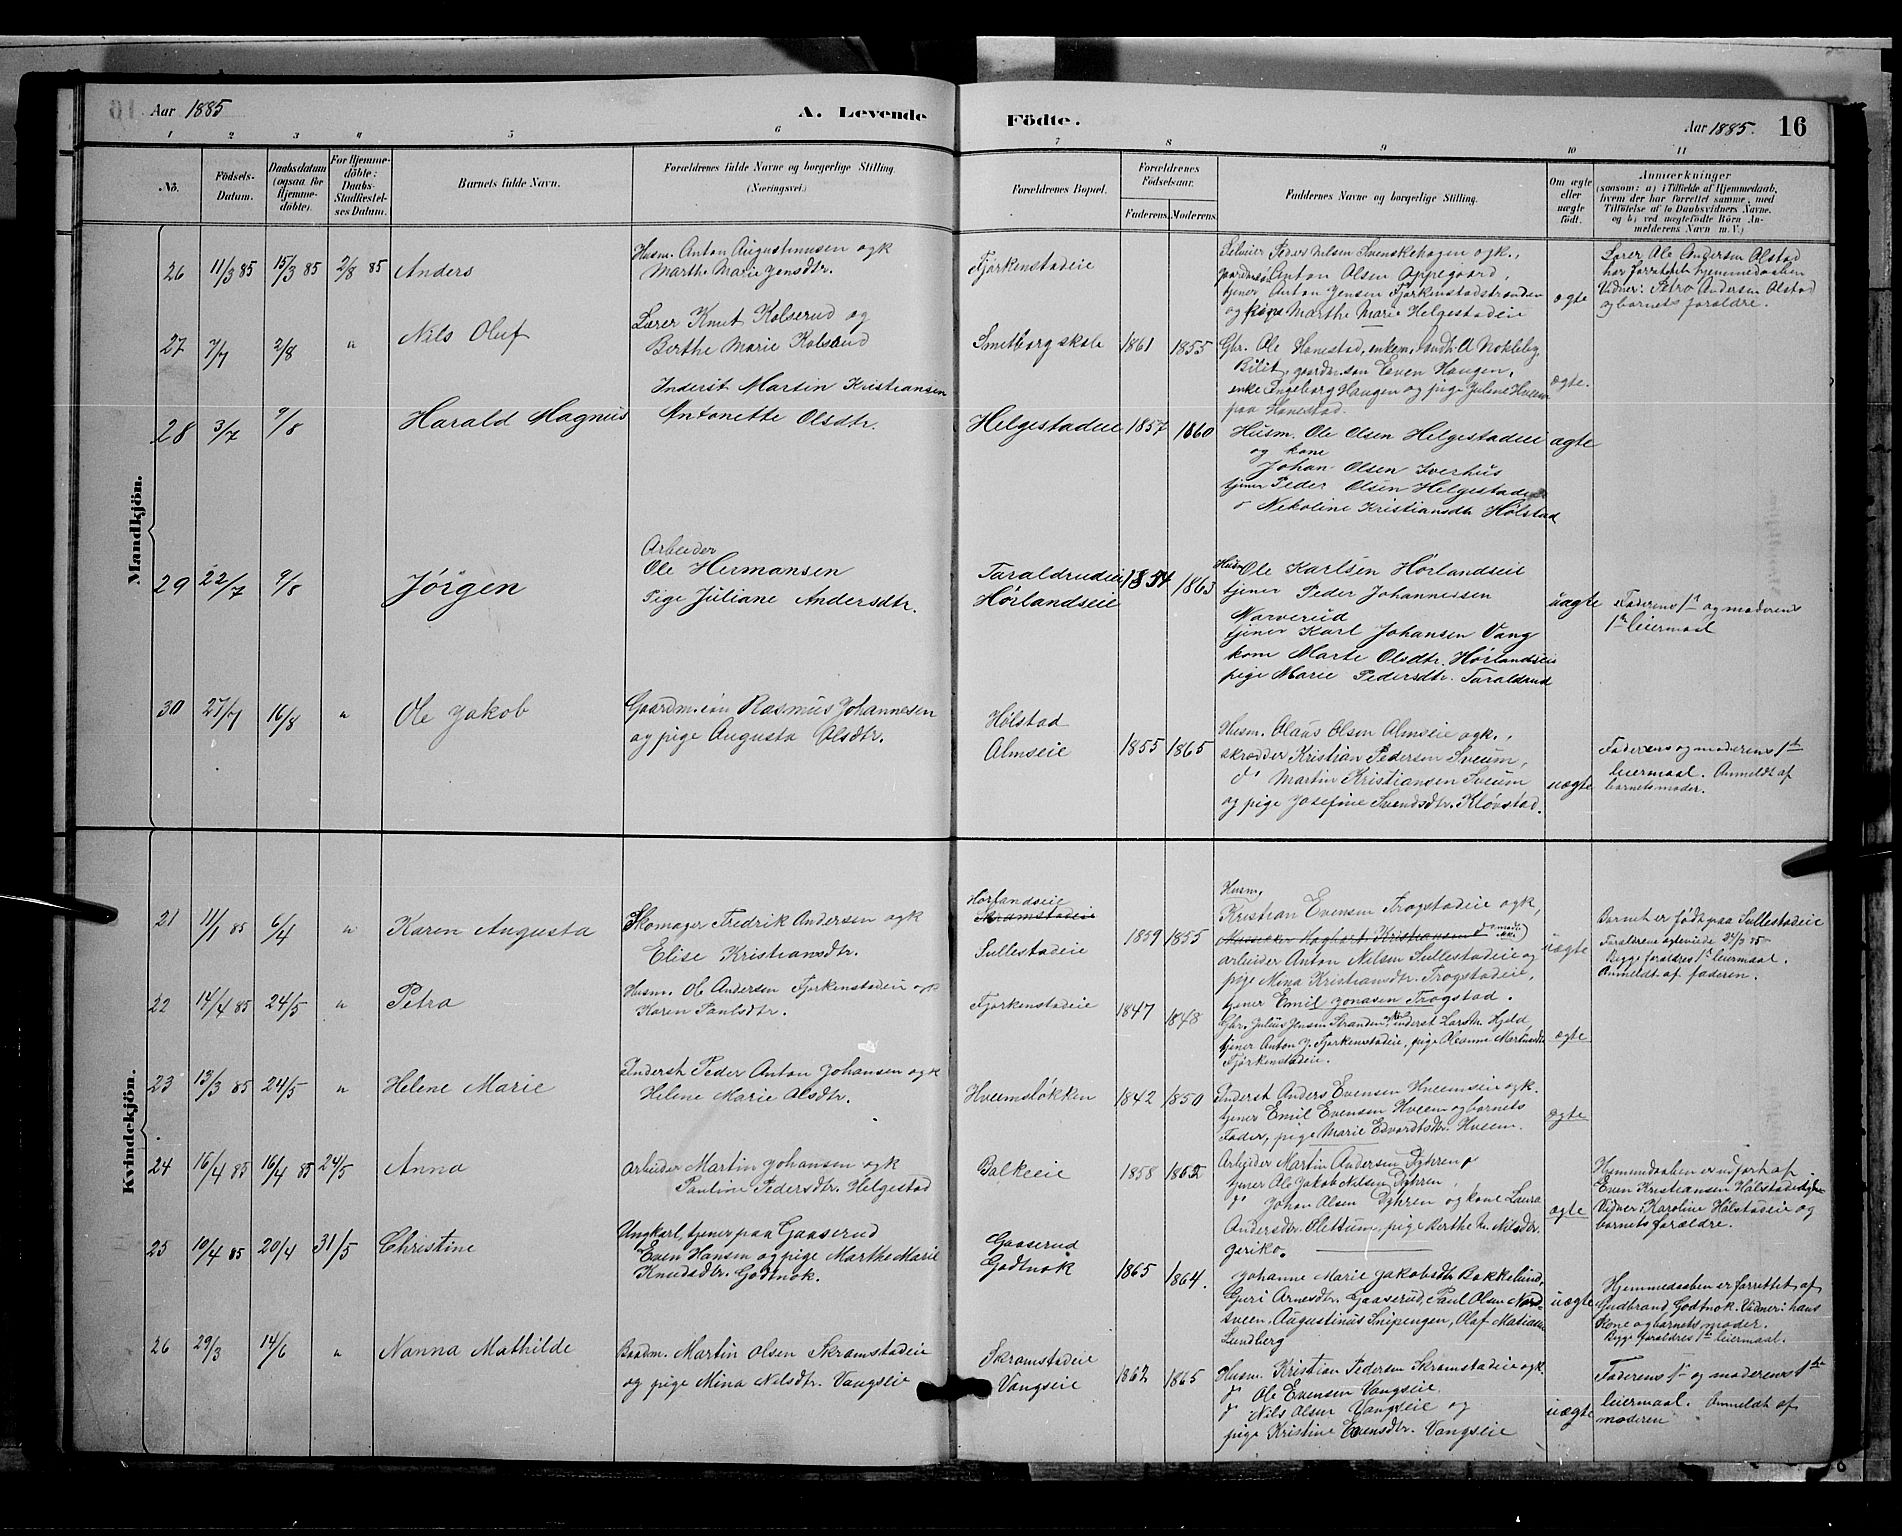 Aar 1885
A. Levende
Födte.
Aar 1885. 16
1 2 3 4 5 6 7 8 9 10 11
No.
Födsels-
Datum.
Daabsdatum
(ogsaa for
Hjemme-
döbte).
For Hjemme-
döbte:
Daabs-
Stadfæstel-
ses Datum.
Barnets fulde Navn.
Forældrenes fulde Navne og borgerlige Stilling
(Næringsvei.)
Forældrenes Bopæl.
Forældrenes
Födselsaar.
Faderens. Moderens.
Faddernes Navne og borgerlige Stilling.
Om ægte
eller
uægte
födt.
Anmærkninger
(saasom: a) i Tilfælde af Hjemmedaab,
hvem der har forrettet samme, med
Tilföielse af to Daabsvidners Navne.
og b) ved uægtefödte Börn An-
melderens Navn m. V.)
Mandkjön.
26 11/3 85 15/3 85 2/8 85 Anders
Husm. Anton Augustinusen og k
Marthe Marie Jensdtr.
Fjørkenstadeie
Selveier Peder Nilsen Svenskehagen og k.,
Anton Olsen Oppegaard,
tjener Anton Jensen Fjørkenstadstranden
og Marthe Marie Helgestadeie
ægte
Lærer Ole Andersen Alstad
har forrettet hjemmedaaben
Vidner: Petra Andersen Alstad
og barnets forældre.
27 7/7 2/8 " Nils Oluf
Lærer Knut Kolserud og
Berthe Marie Kolserud
Smeborg skole 1861 1855
Gbr. Ole Hanestad, enkem.
Bilit, gaardm.søn Even Haugen,
enke Ingeborg Haugen og pige Julene Hveem
paa Hanestad.
ægte.
28 3/7 9/8 Harald Magnus
Inderst Martin Kristiansen
Antonette Olsdtr.
Helgestadeie 1857 1860
Husm. Ole Olsen Helgestadeie
og kone
Johan Olsen Iverhus
tjener Peder Olsen Helgestadeie
Nekoline Kristiansdtr Hølstad
ægte
29 22/7 9/8 Jørgen
Arbeider
Ole Hermansen
Pige Juliane Andersdtr.
Taraldrudeie
Hørlandseie
1854 1863
Husm Ole Karlsen Hørlandseie
tjener Peder Johannessen
Narverud
tjener Karl Johansen Vang
kone Marte Olsdtr. Hørlandseie
pige Marie Pedersdtr. Taraldrud
uægte
Faderens 1ste og moderens
1ste leiermaal
30 27/7 16/8 " Ole Jakob
Gaardm.søn Rasmus Johannesen
og pige Augusta Olsdtr.
Hølstad
Almseie
1855 1865
Husm. Olaus Olsen Almseie og k.,
skrædder Kristian Pedersen Sveum,
do Martin Kristiansen Sveum
og pige Josefine Svendsdtr. Kløvstad.
uægte
Faderens og moderens 1ste
leiermaal. Anmeldt af
barnets moder.
Kvindekjön.
21 11/1 85 6/4 " Karen Augusta
Skomager Fredrik Andersen og k
Elise Kristiansdtr.
Hørlandseie
Skramstadeie
Sullestadeie
1859 1855
Husm.
Kristian Evensen Trogstadeie og k,
arbeider Anton Nilsen Sullestadeie og
pige Mina Kristiansdtr. Trogstadeie,
tjener Emil Jonasen Trogstad.
uægte
Barnet er født paa Sullestadeie
Forældrene egteviede
Begge forældres 1ste leiermaal.
Anmeldt af faderen.
22 14/4 85 24/5 " Petra
Husm. Ole Andersen Fjørkenstadeie og k
Karen Paulsdtr.
Fjørkenstadeie 1847 1848
Gbr. Julius Jensen Stranden, inderst Lars Hjeld
tjener Anton J. Fjørkenstadeie, pige Oleanne
Fjørkenstadeie.
ægte
23 13/3 85 24/5 " Helene Marie
Inderst Peder Anton Johansen og k
Helene Marie Olsdtr.
Hveemsløkken 1842 1850
Inderst Anders Evensen Hveemseie og k.
tjener Emil Evensen Hveem og barnets
Fader, pige Marie Edvardsdtr. Hveem.
ægte
24 16/4 85 16/4 85 24/5 Anna
Arbeider Martin Johansen og k
Pauline Pedersdtr. Helgestad
Balkeeie 1858 1862
Arbeider Martin Andersen Dyhren,
tjener Ole Jakob Nilsen Dyhren,
do Johan Olsen Dyhren og kone Laura
Andersdtr. pige Berthe Nilsdtr.
Jeriko.
ægte
Hjemmedaaben er udført af
Even Kristiansen Hølstadeie
Vidner: Karoline Hølstadeie og
barnets forældre.
25 10/4 85 20/4 31/5 Christine
Ungkarl, tjener paa Gaaserud
Even Hansen og pige Marthe Marie
Knudsdtr. Godtnok.
Gaaserud
Godtnok
1865 1864.
Johanne Marie Jakobsdtr Bakkelund,
Guri Arnesdtr. Gaaserud, Paul Olsen Nord-
sveen, Augustinus Snipengen, Olaf Matiasen
Lundberg
uægte
Hjemmedaaben er forrettet af
Gudbrand Godtnok. Vidner: hans
kone og barnets moder.
Begge forældres 1ste leiermaal.
26 29/3 14/6 " Nanna Mathilde
Baadm. Martin Olsen Skramstadeie
og pige Mina Nilsdtr. Vangseie
Skramstadeie
Vangseie
1862 1865
Husm. Kristian Pedersen Skramstadeie og k.
do Ole Evensen Vangseie
do Nils Olsen Vangseie og
pige Kristine Evensdtr. Vangseie
uægte
Faderens 1ste og moderens 1ste
leiermaal. Anmeldt af
moderen